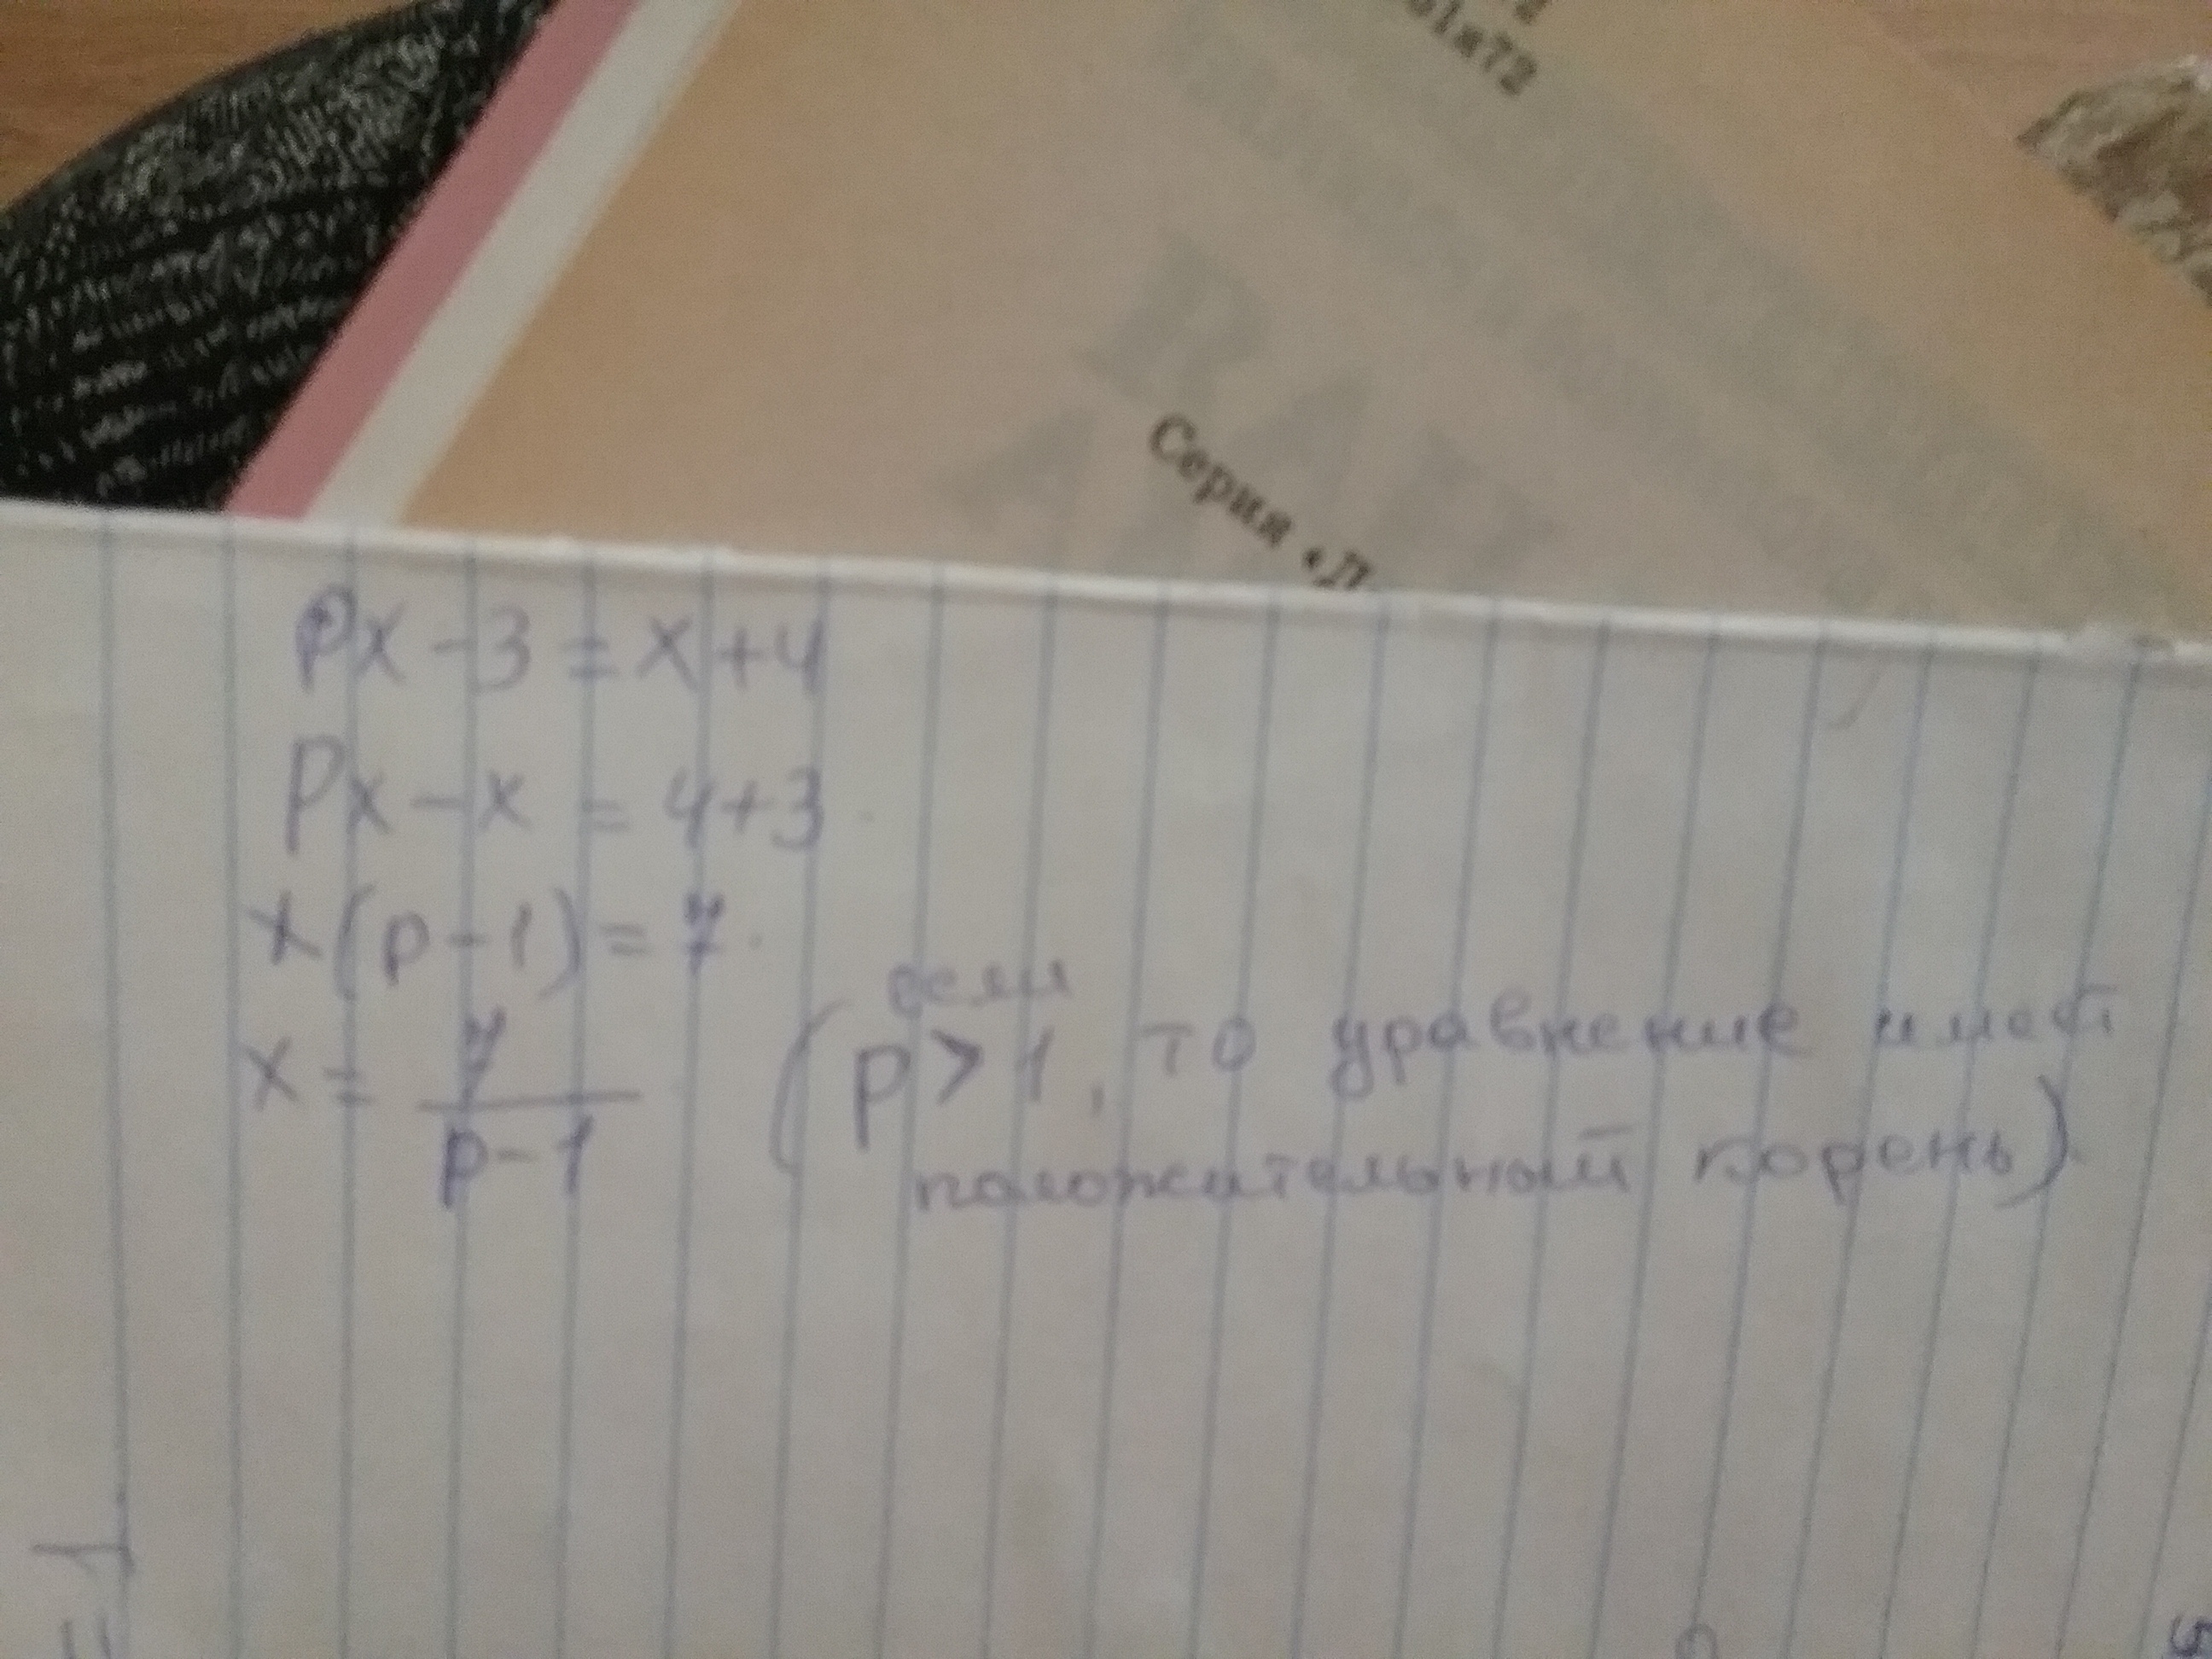 ola72
Серия «Л
Px - 3 = x + 4
Px - x = 4 + 3
x(p - 1) = 7
если
x = 7/(p - 1) (p > 1, то уравнение имеет
положительный корень)